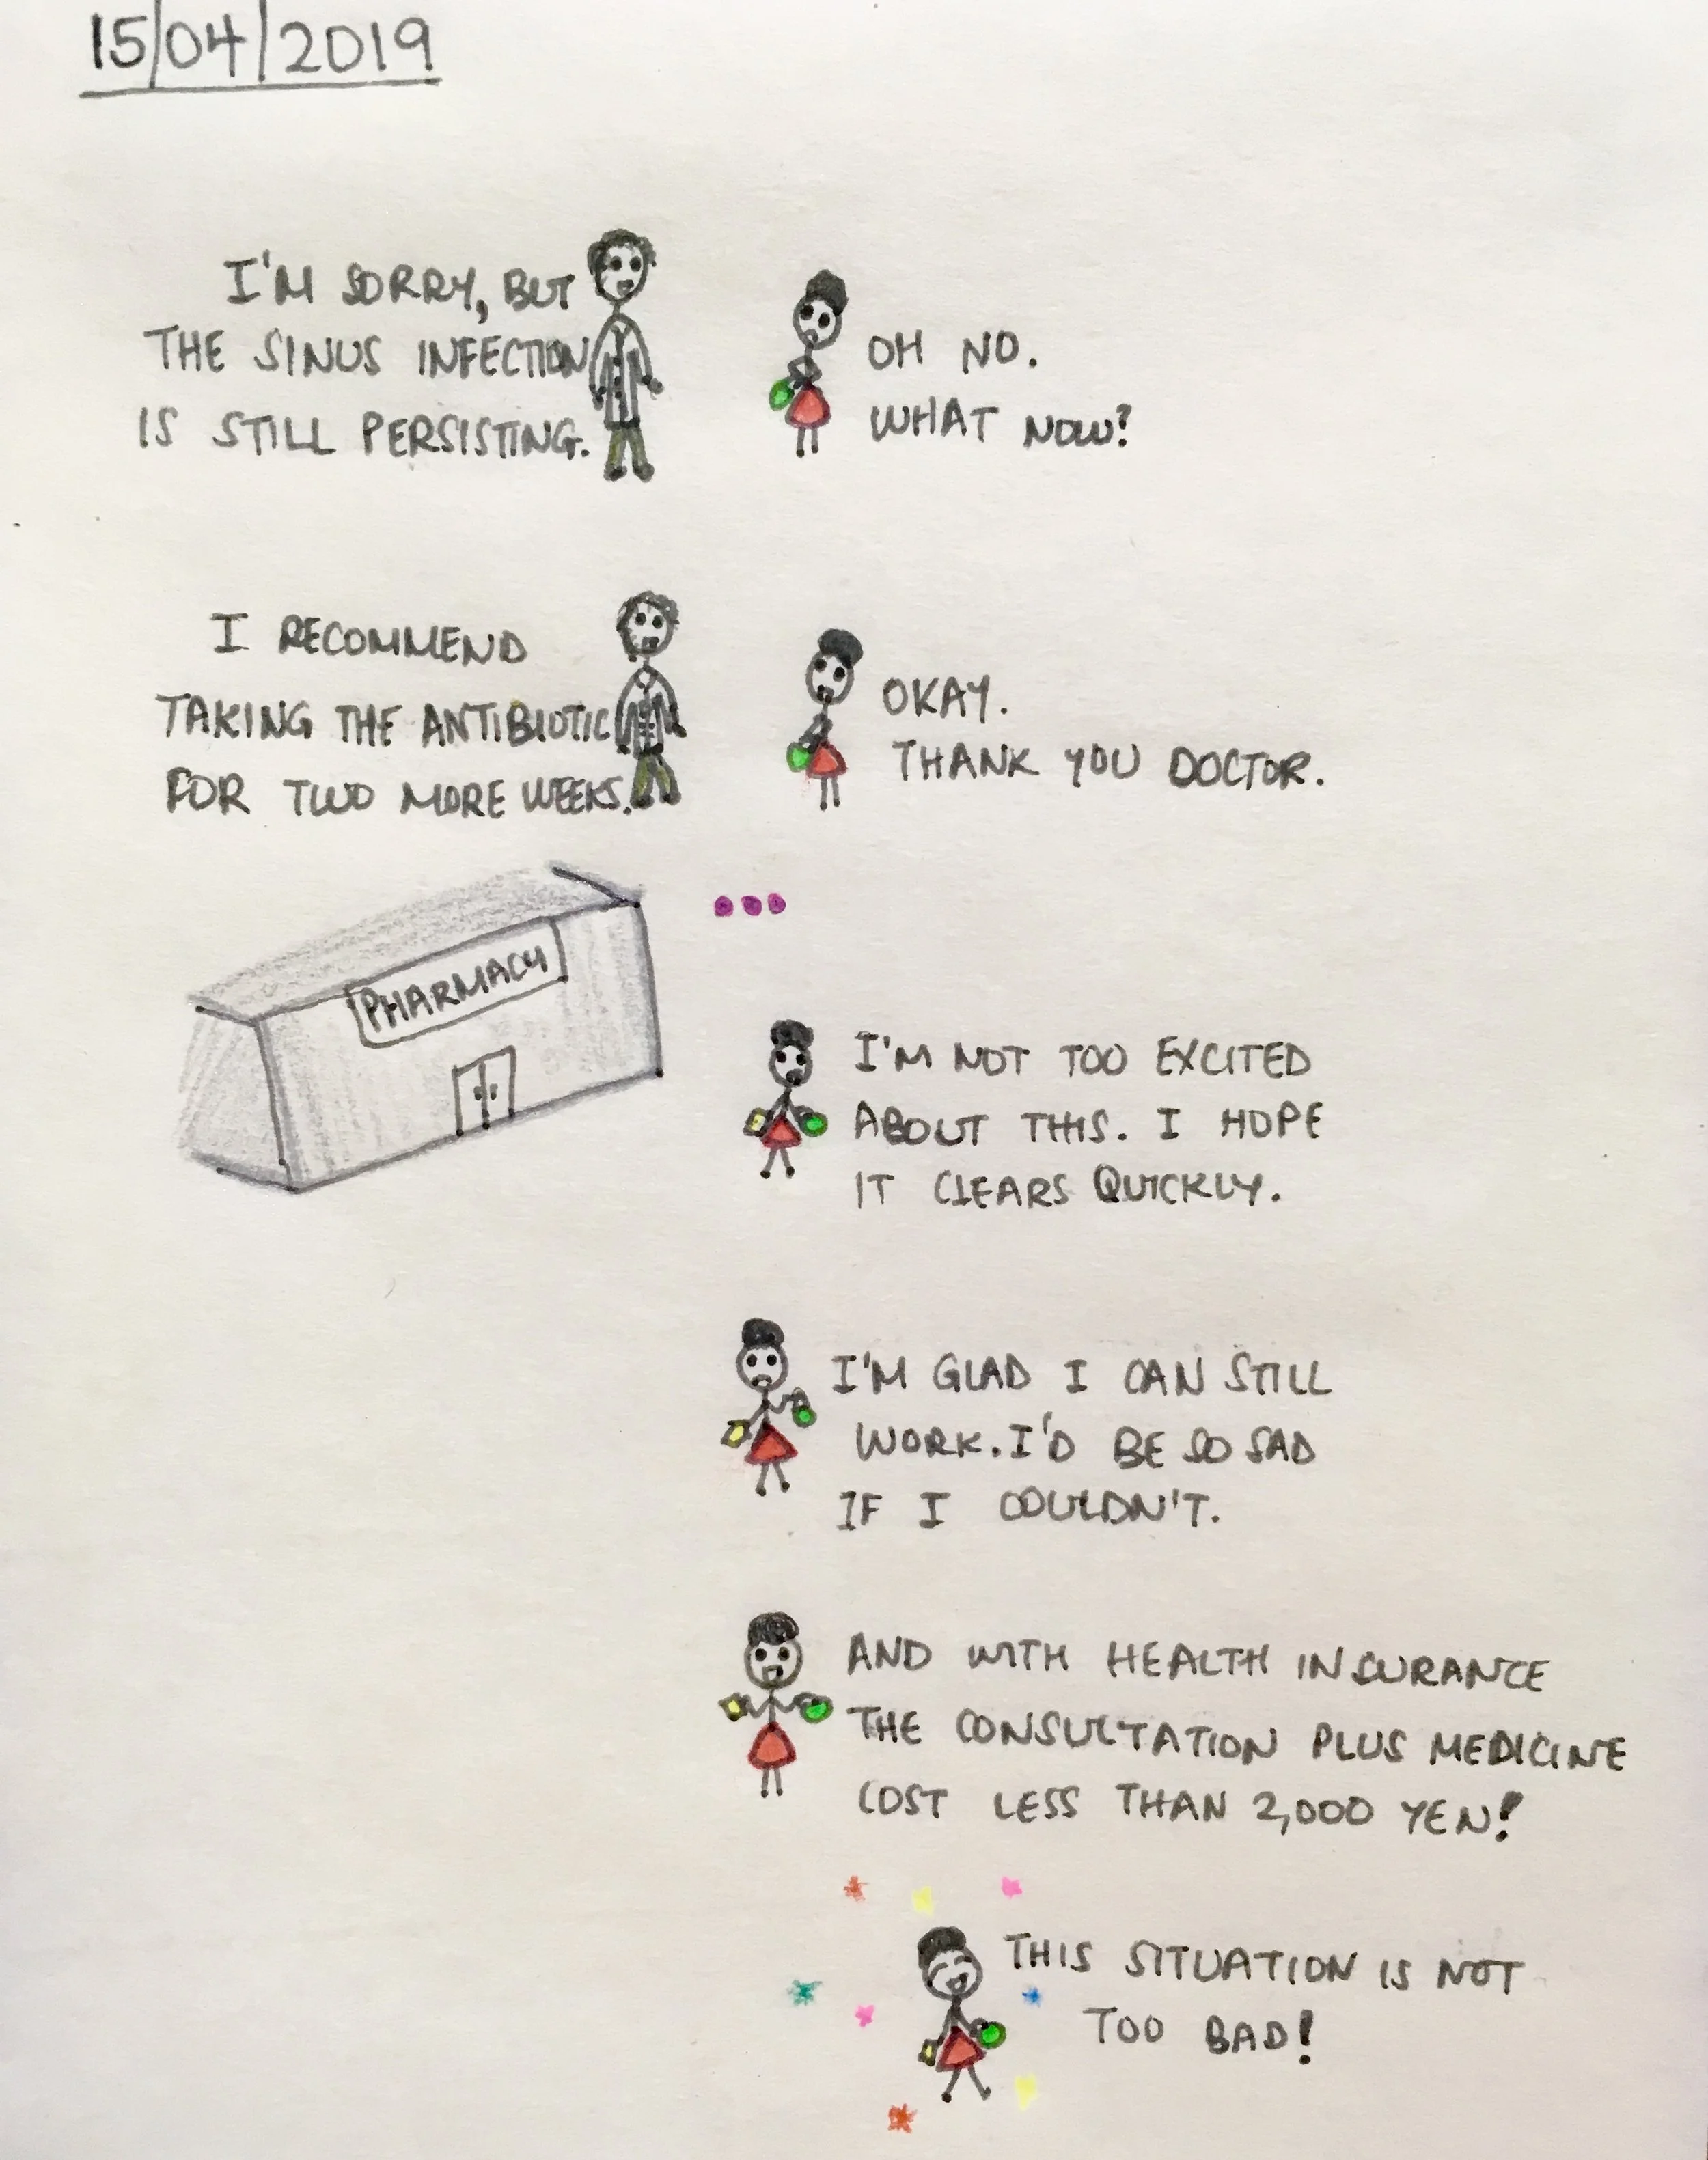 15/04/2019
I'M SORRY, BUT
THE SINUS INFECTION
IS STILL PERSISTING.
OH NO.
WHAT NOW?
I RECOMMEND
TAKING THE ANTIBIOTIC
FOR TWO MORE WEEKS.
OKAY.
THANK YOU DOCTOR.
PHARMACY
...
I'M NOT TOO EXCITED
ABOUT THIS. I HOPE
IT CLEARS QUICKLY.
I'M GLAD I CAN STILL
WORK. I'D BE SO SAD
IF I COULDN'T.
AND WITH HEALTH INSURANCE
THE CONSULTATION PLUS MEDICINE
COST LESS THAN 2,000 YEN!
THIS SITUATION IS NOT
TOO BAD!